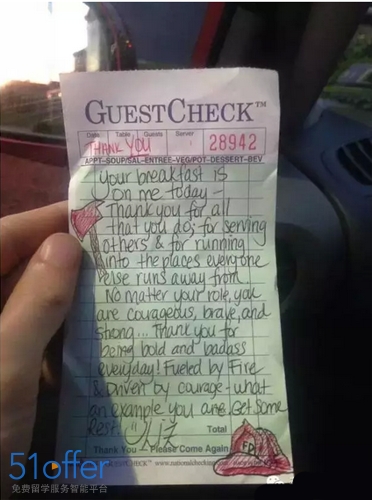 GUESTCHECK™
Date Table Guests Server
THANK YOU
28942
APPT-SOUP/SAL-ENTREE-VEG/POT-DESSERT-BEV
your breakfast is
on me today -
Thank you for all
that you do; for serving
others & for running
into the places everyone
else runs away from.
No matter your role, you
are courageous, brave, and
strong... Thank you for
being bold and badass
everyday! Fueled by Fire
& Driven by courage - what
an example you are. Get some
Rest. Liz
Total
Thank You — Please Come Again
FD
51offer
免费留学服务智能平台